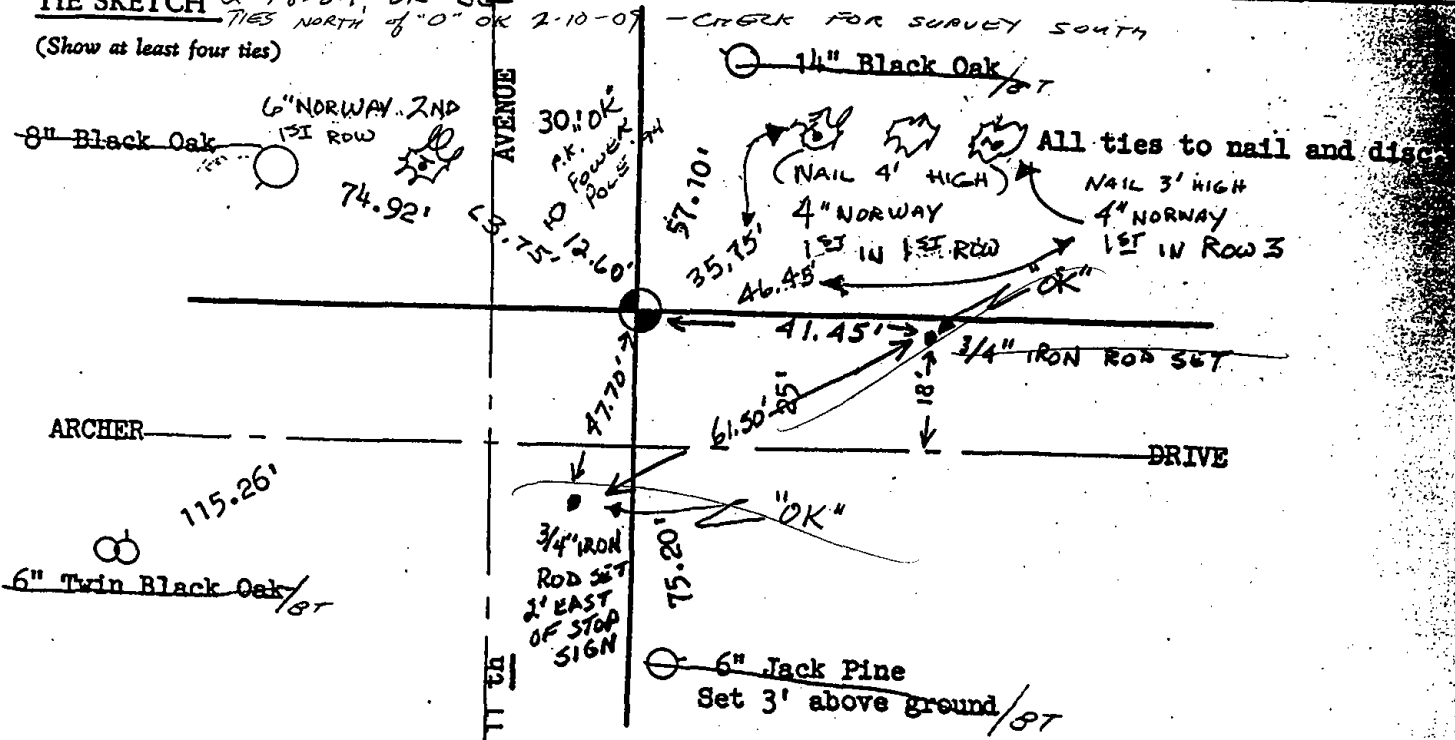 TIE SKETCH
TIES NORTH of "O" OK 2-10-09 - CHECK FOR SURVEY SOUTH
(Show at least four ties)
14" Black Oak/BT
AVENUE
6" NORWAY 2ND
1ST ROW
8" Black Oak
30' "OK"
P.K.
POWER
POLE
All ties to nail and disc.
(NAIL 4' HIGH)
4" NORWAY
1ST IN 1ST ROW
NAIL 3' HIGH
4" NORWAY
1ST IN ROW 3
74.92'
12.60'
57.10'
35.75'
46.45'
"OK"
41.45'
3/4" IRON ROD SET
47.70'
61.50'
25'
18'
ARCHER
DRIVE
115.26'
"OK"
6" Twin Black Oak/BT
3/4" IRON
ROD SET
2' EAST
OF STOP
SIGN
75.20'
11 th
6" Jack Pine
Set 3' above ground/BT